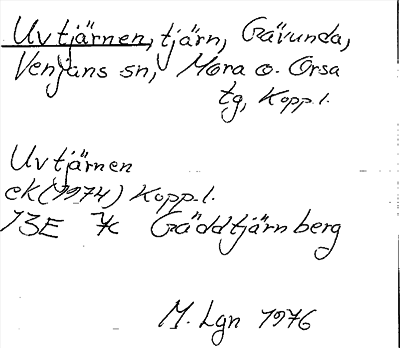 Uvtjärnen, tjärn, Gävunda,
Venjans sn, Mora o. Orsa
tg, Kopp.l.
Uvtjärnen
ek (1974) Kopp.l.
13E 7c Gäddtjärnberg
M. Lgn 1976